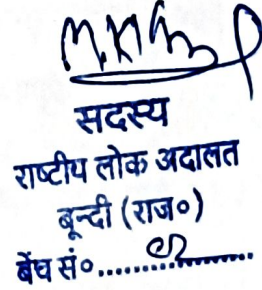 सदस्य
राष्टीय लोक अदालत
बून्दी (राज०)
बेंच सं०..................